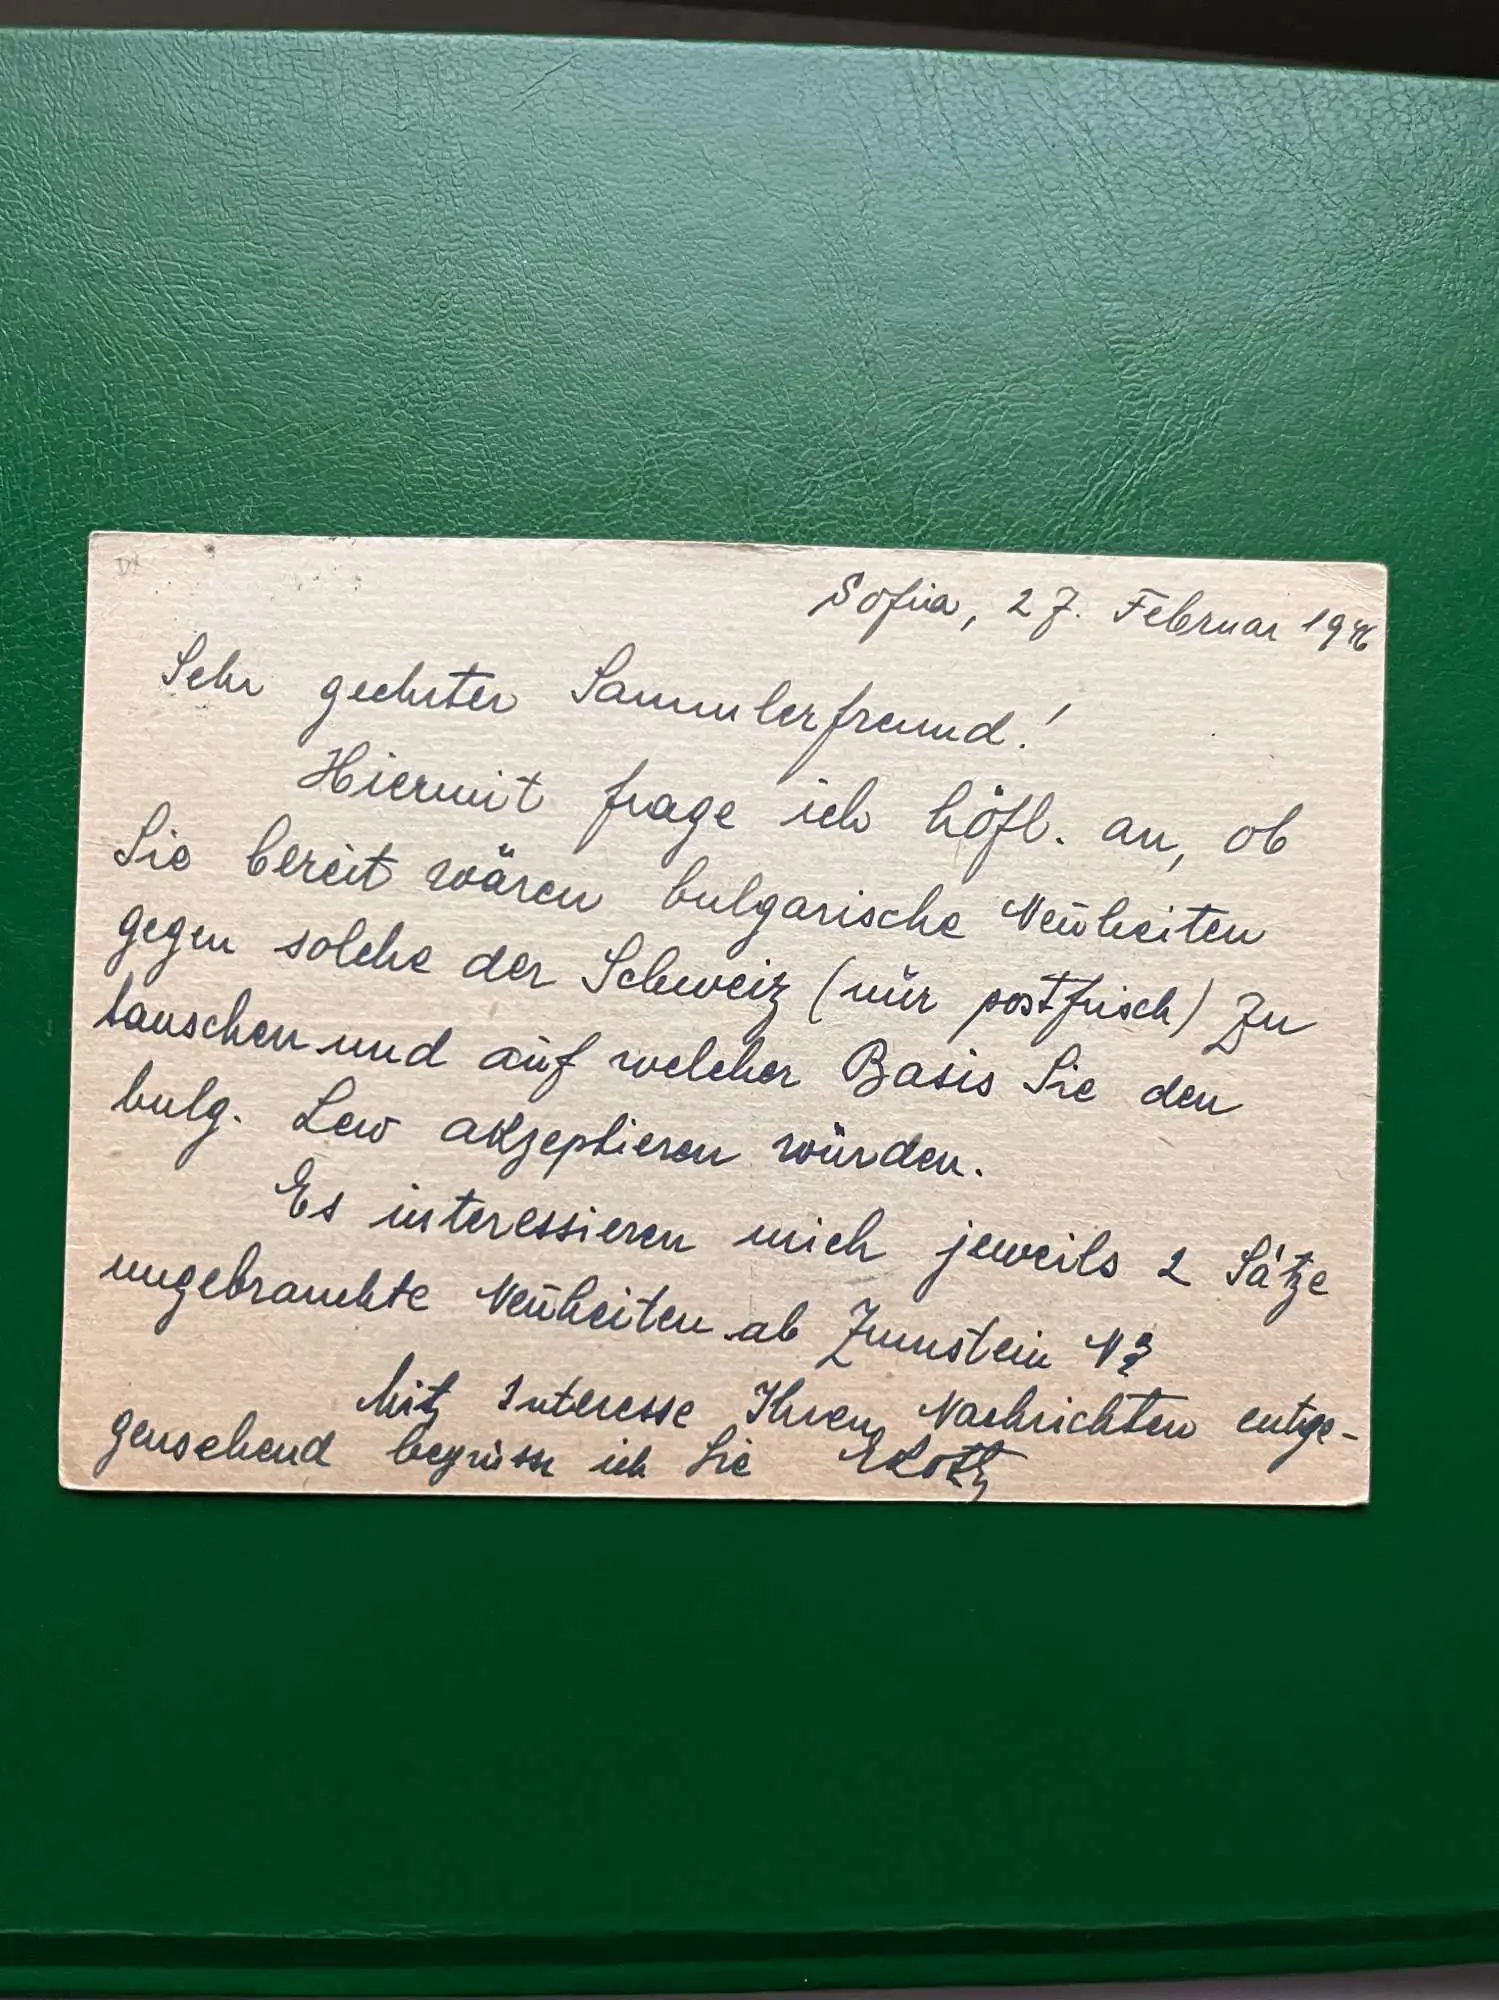 Sofia, 27. Februar 1946
Sehr geehrter Sammlerfreund!
Hiermit frage ich höfl. an, ob
Sie bereit wären bulgarische Neuheiten
gegen solche der Schweiz (nur postfrisch) zu
tauschen und auf welcher Basis Sie den
bulg. Lew akzeptieren würden.
Es interessieren mich jeweils 2 Sätze
ungebrauchte Neuheiten ab Zumstein N
Mit Interesse Ihren Nachrichten entge-
gensehend begrüsse ich Sie